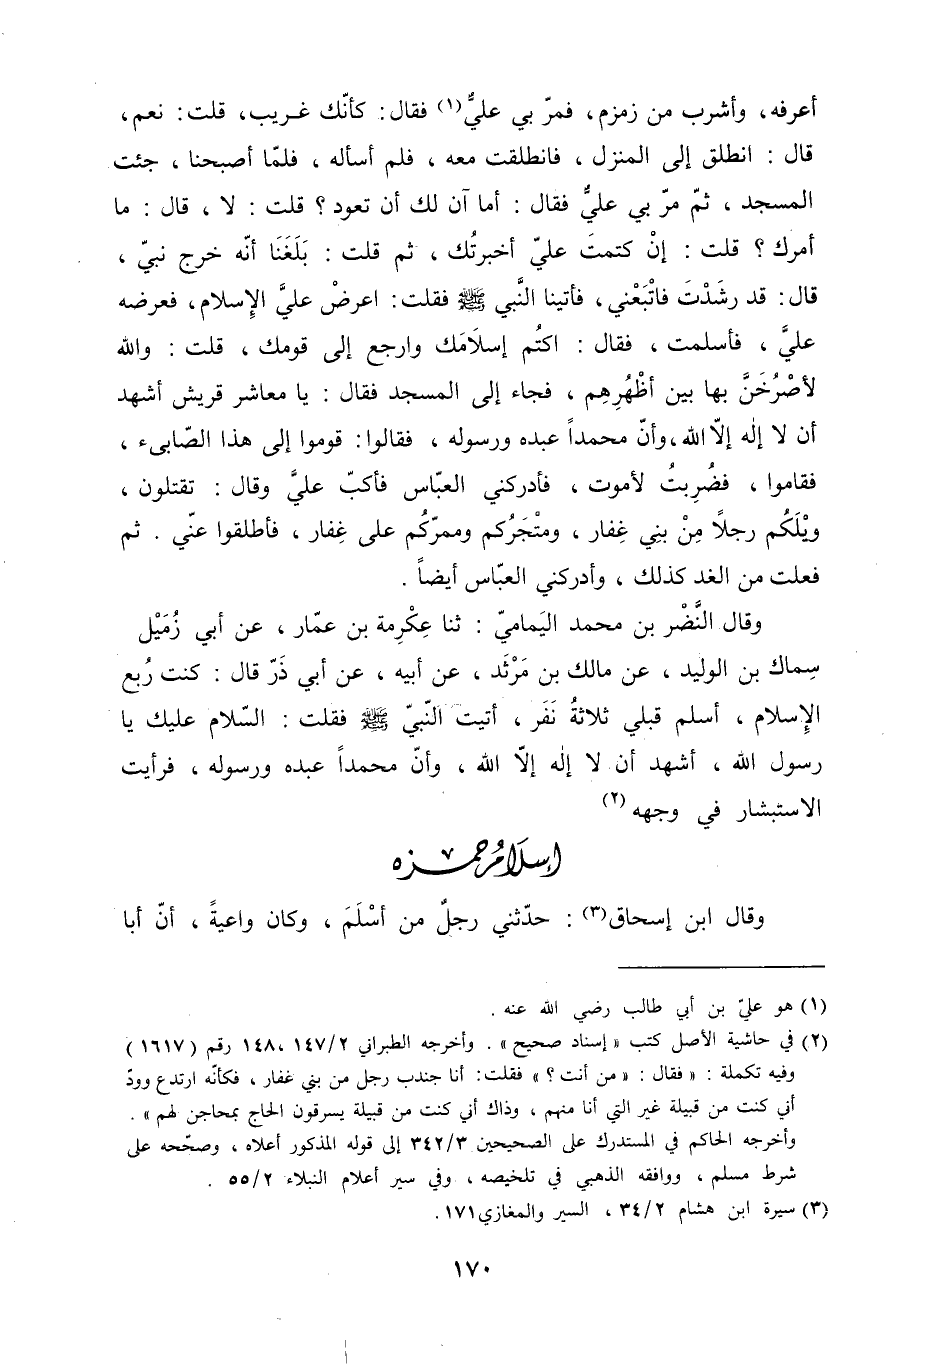 أعرفه، وأشرب من زمزم، فمرّ بي عليٌّ(١) فقال: كأنّك غريب، قلت: نعم،
قال : انطلق إلى المنزل ، فانطلقت معه ، فلم أسأله ، فلمّا أصبحنا ، جئت
المسجد ، ثمّ مرّ بي عليٌّ فقال : أما آن لك أن تعود؟ قلت : لا ، قال : ما
أمرك؟ قلت : إنْ كتمتَ عليّ أخبرتُك ، ثم قلت : بَلَغَنَا أنّه خرج نبيّ ،
قال: قد رشَدْتَ فاتْبَعْني، فأتينا النَّبي ﷺ فقلت: اعرضْ عليَّ الإِسلام، فعرضه
عليَّ ، فأسلمت ، فقال : اكتُم إسلَامَك وارجع إلى قومك ، قلت : والله
لأصْرُخَنَّ بها بين أظْهُرِهِم ، فجاء إلى المسجد فقال : يا معاشر قريش أشهد
أن لا إله إلّا الله، وأنّ محمداً عبده ورسوله ، فقالوا: قوموا إلى هذا الصّابىء ،
فقاموا ، فضُرِبتُ لأموت ، فأدركني العبّاس فأكبّ عليَّ وقال : تقتلون ،
ويْلَكُم رجلاً مِنْ بني غِفار ، ومتْجَرُكم وممرّكم على غِفار ، فأطلقوا عنّي . ثم
فعلت من الغد كذلك ، وأدركني العبّاس أيضاً .
وقال النَّضْر بن محمد اليَماميّ : ثنا عِكْرِمة بن عمّار ، عن أبي زُمَيْل
سِماك بن الوليد ، عن مالك بن مَرْثَد ، عن أبيه ، عن أبي ذَرّ قال : كنت رُبع
الإِسلام ، أسلم قبلي ثلاثةُ نَفَر ، أتيت النّبيّ ﷺ فقلت : السّلام عليك يا
رسول الله ، أشهد أن لا إله إلّا الله ، وأنّ محمداً عبده ورسوله ، فرأيت
الاستبشار في وجهه(٢)
إسلام حمزه
وقال ابن إسحاق(٣) : حدّثني رجلٌ من أسْلَمَ ، وكان واعيةً ، أنّ أبا
(١) هو عليّ بن أبي طالب رضي الله عنه .
(٢) في حاشية الأصل كتب « إسناد صحيح » . وأخرجه الطبراني ١٤٧/٢ ،١٤٨ رقم (١٦١٧)
وفيه تكملة : « فقال : « من أنت؟ » فقلت: أنا جندب رجل من بني غفار ، فكأنّه ارتدع وودّ
أني كنت من قبيلة غير التي أنا منهم ، وذاك أني كنت من قبيلة يسرقون الحاج بمحاجن لهم » .
وأخرجه الحاكم في المستدرك على الصحيحين ٣٤٢/٣ إلى قوله المذكور أعلاه ، وصحّحه على
شرط مسلم ، ووافقه الذهبي في تلخيصه ، وفي سير أعلام النبلاء ٥٥/٢ .
(٣) سيرة ابن هشام ٣٤/٢ ، السير والمغازي ١٧١.
١٧٠